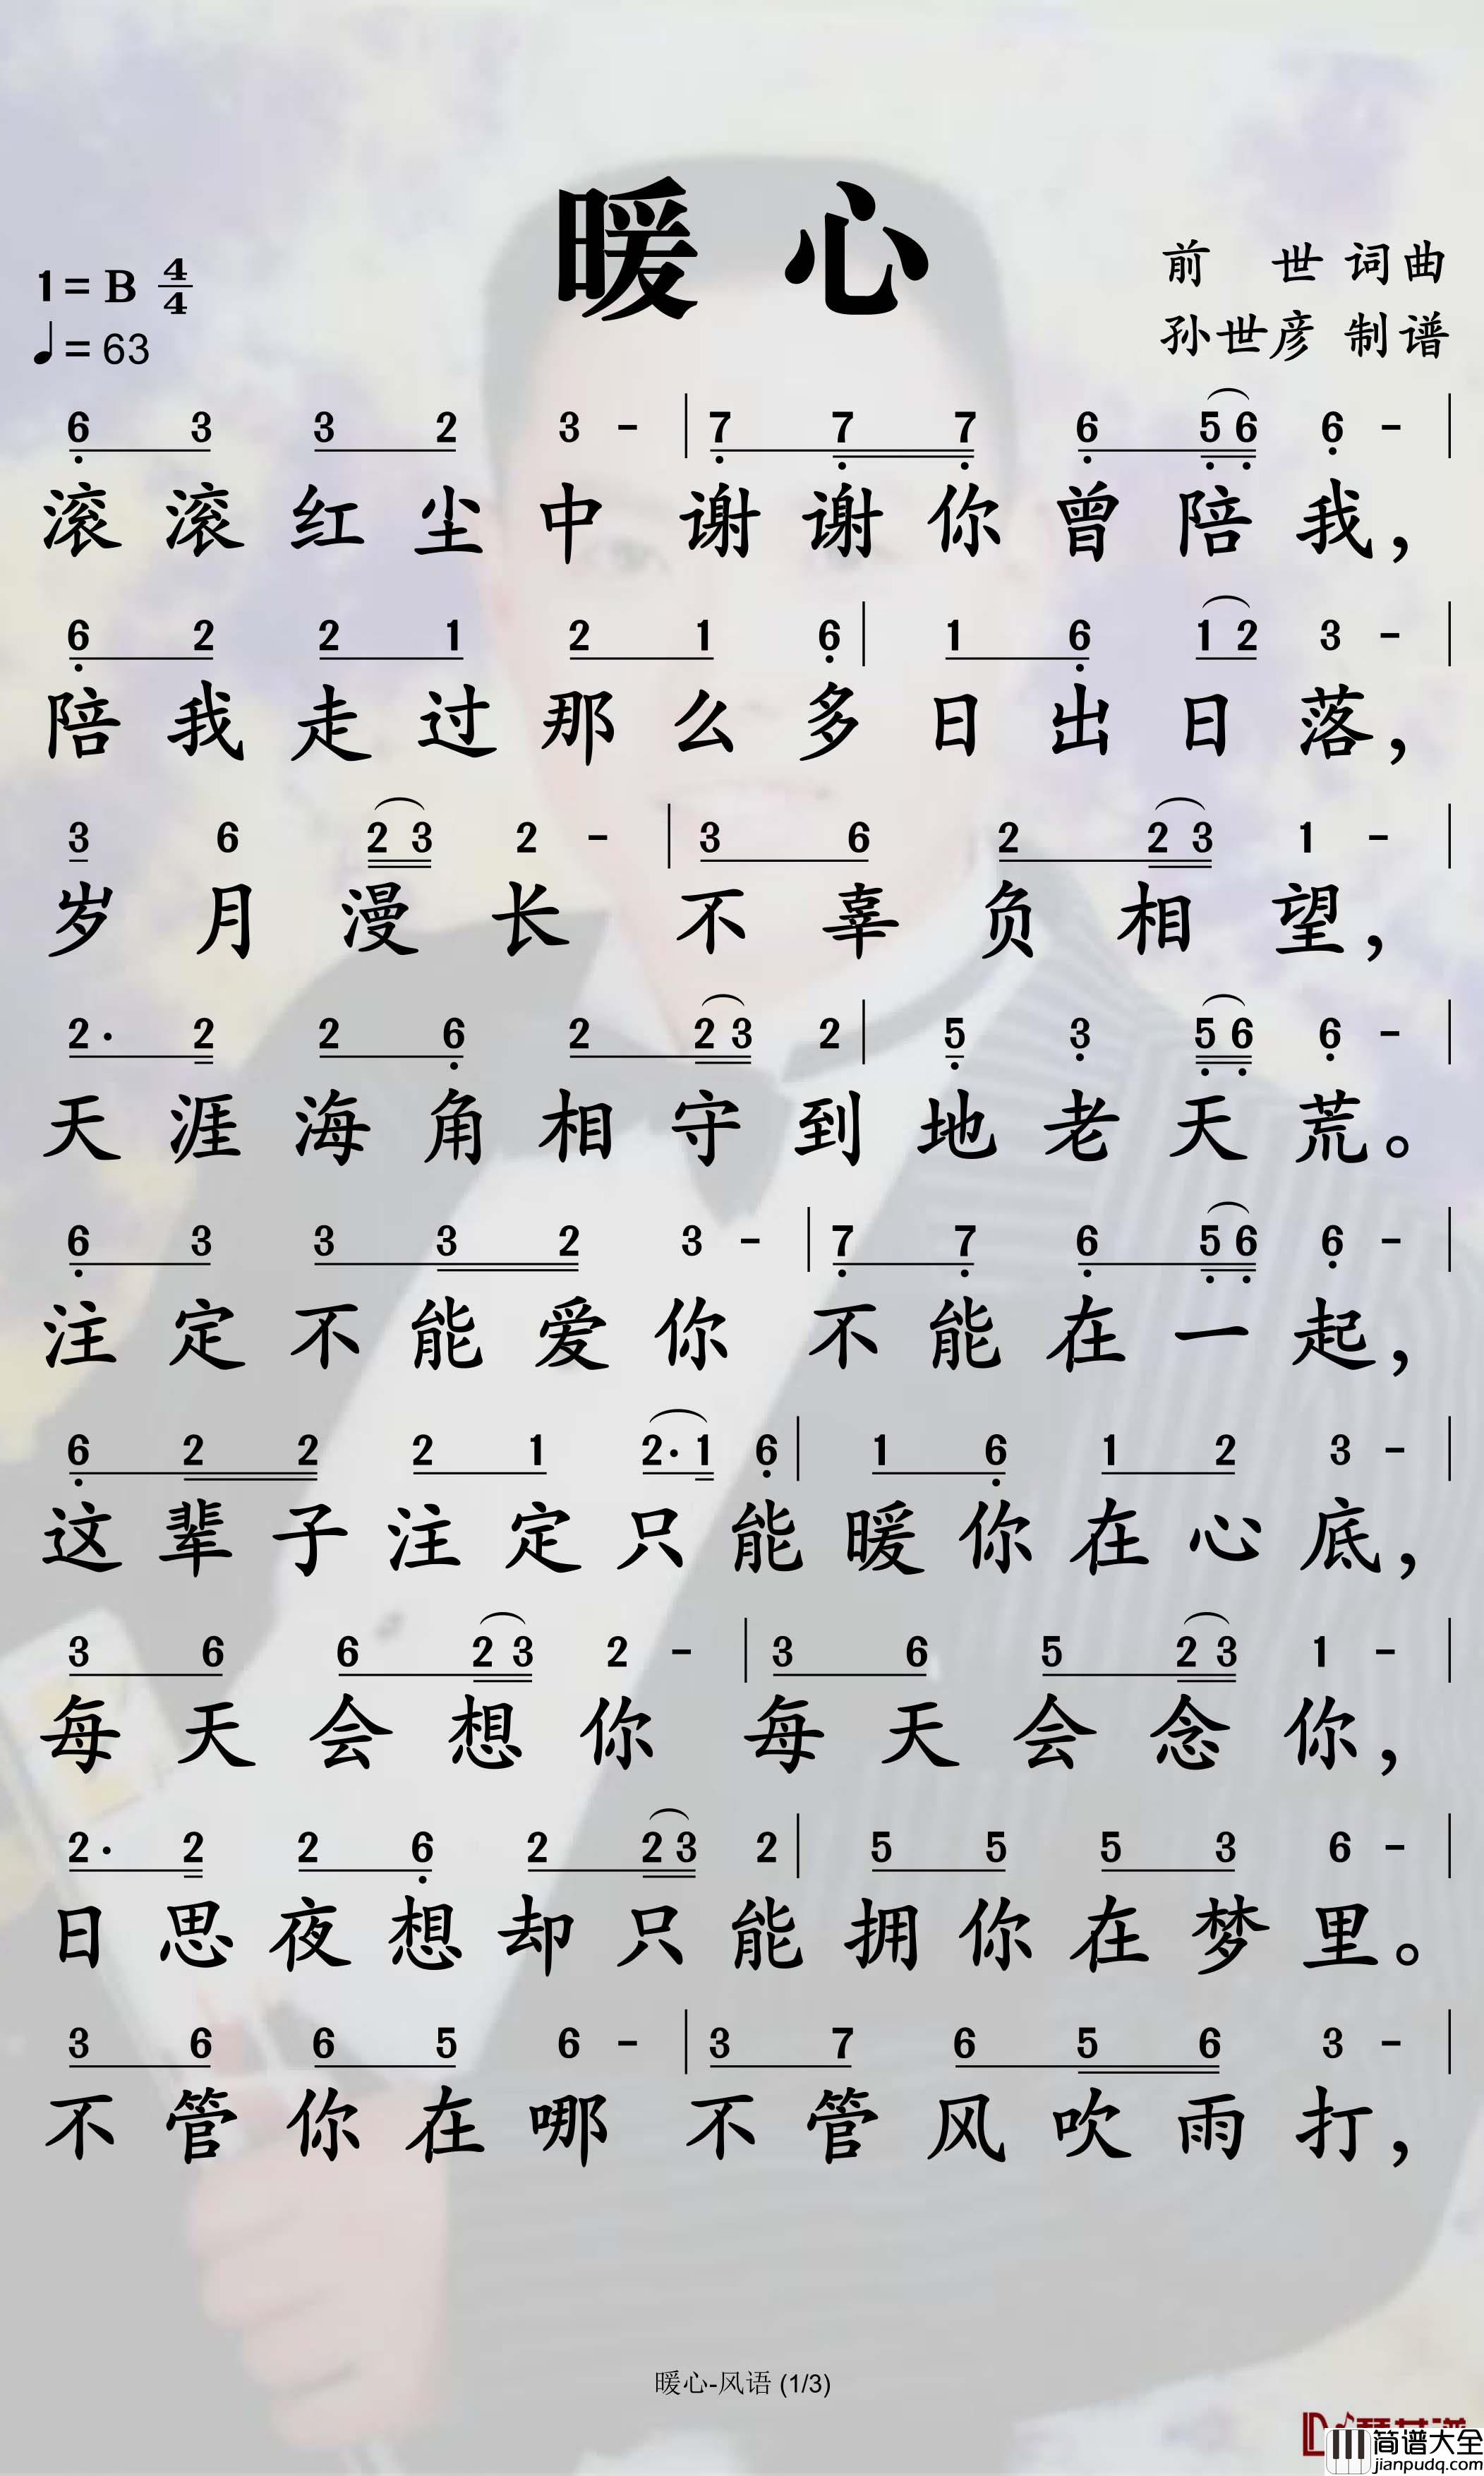 暖心
1=B 4/4
♩=63
前 世 词曲
孙世彦 制谱
6 3 3 2 3 - | 7 7 7 6 5 6 6 - |
滚滚红尘中 谢谢你曾陪我，
6 2 2 1 2 1 6 | 1 6 1 2 3 - |
陪我走过那么多日出日落，
3 6 2 3 2 - | 3 6 2 2 3 1 - |
岁月漫长 不辜负相望，
2· 2 2 6 2 2 3 2 | 5 3 5 6 6 - |
天涯海角相守到地老天荒。
6 3 3 3 2 3 - | 7 7 6 5 6 6 - |
注定不能爱你 不能在一起，
6 2 2 2 1 2· 1 6 | 1 6 1 2 3 - |
这辈子注定只能暖你在心底，
3 6 6 2 3 2 - | 3 6 5 2 3 1 - |
每天会想你 每天会念你，
2· 2 2 6 2 2 3 2 | 5 5 5 3 6 - |
日思夜想却只能拥你在梦里。
3 6 6 5 6 - | 3 7 6 5 6 3 - |
不管你在哪 不管风吹雨打，
暖心-风语 (1/3)
简谱大全
jianpudq.com